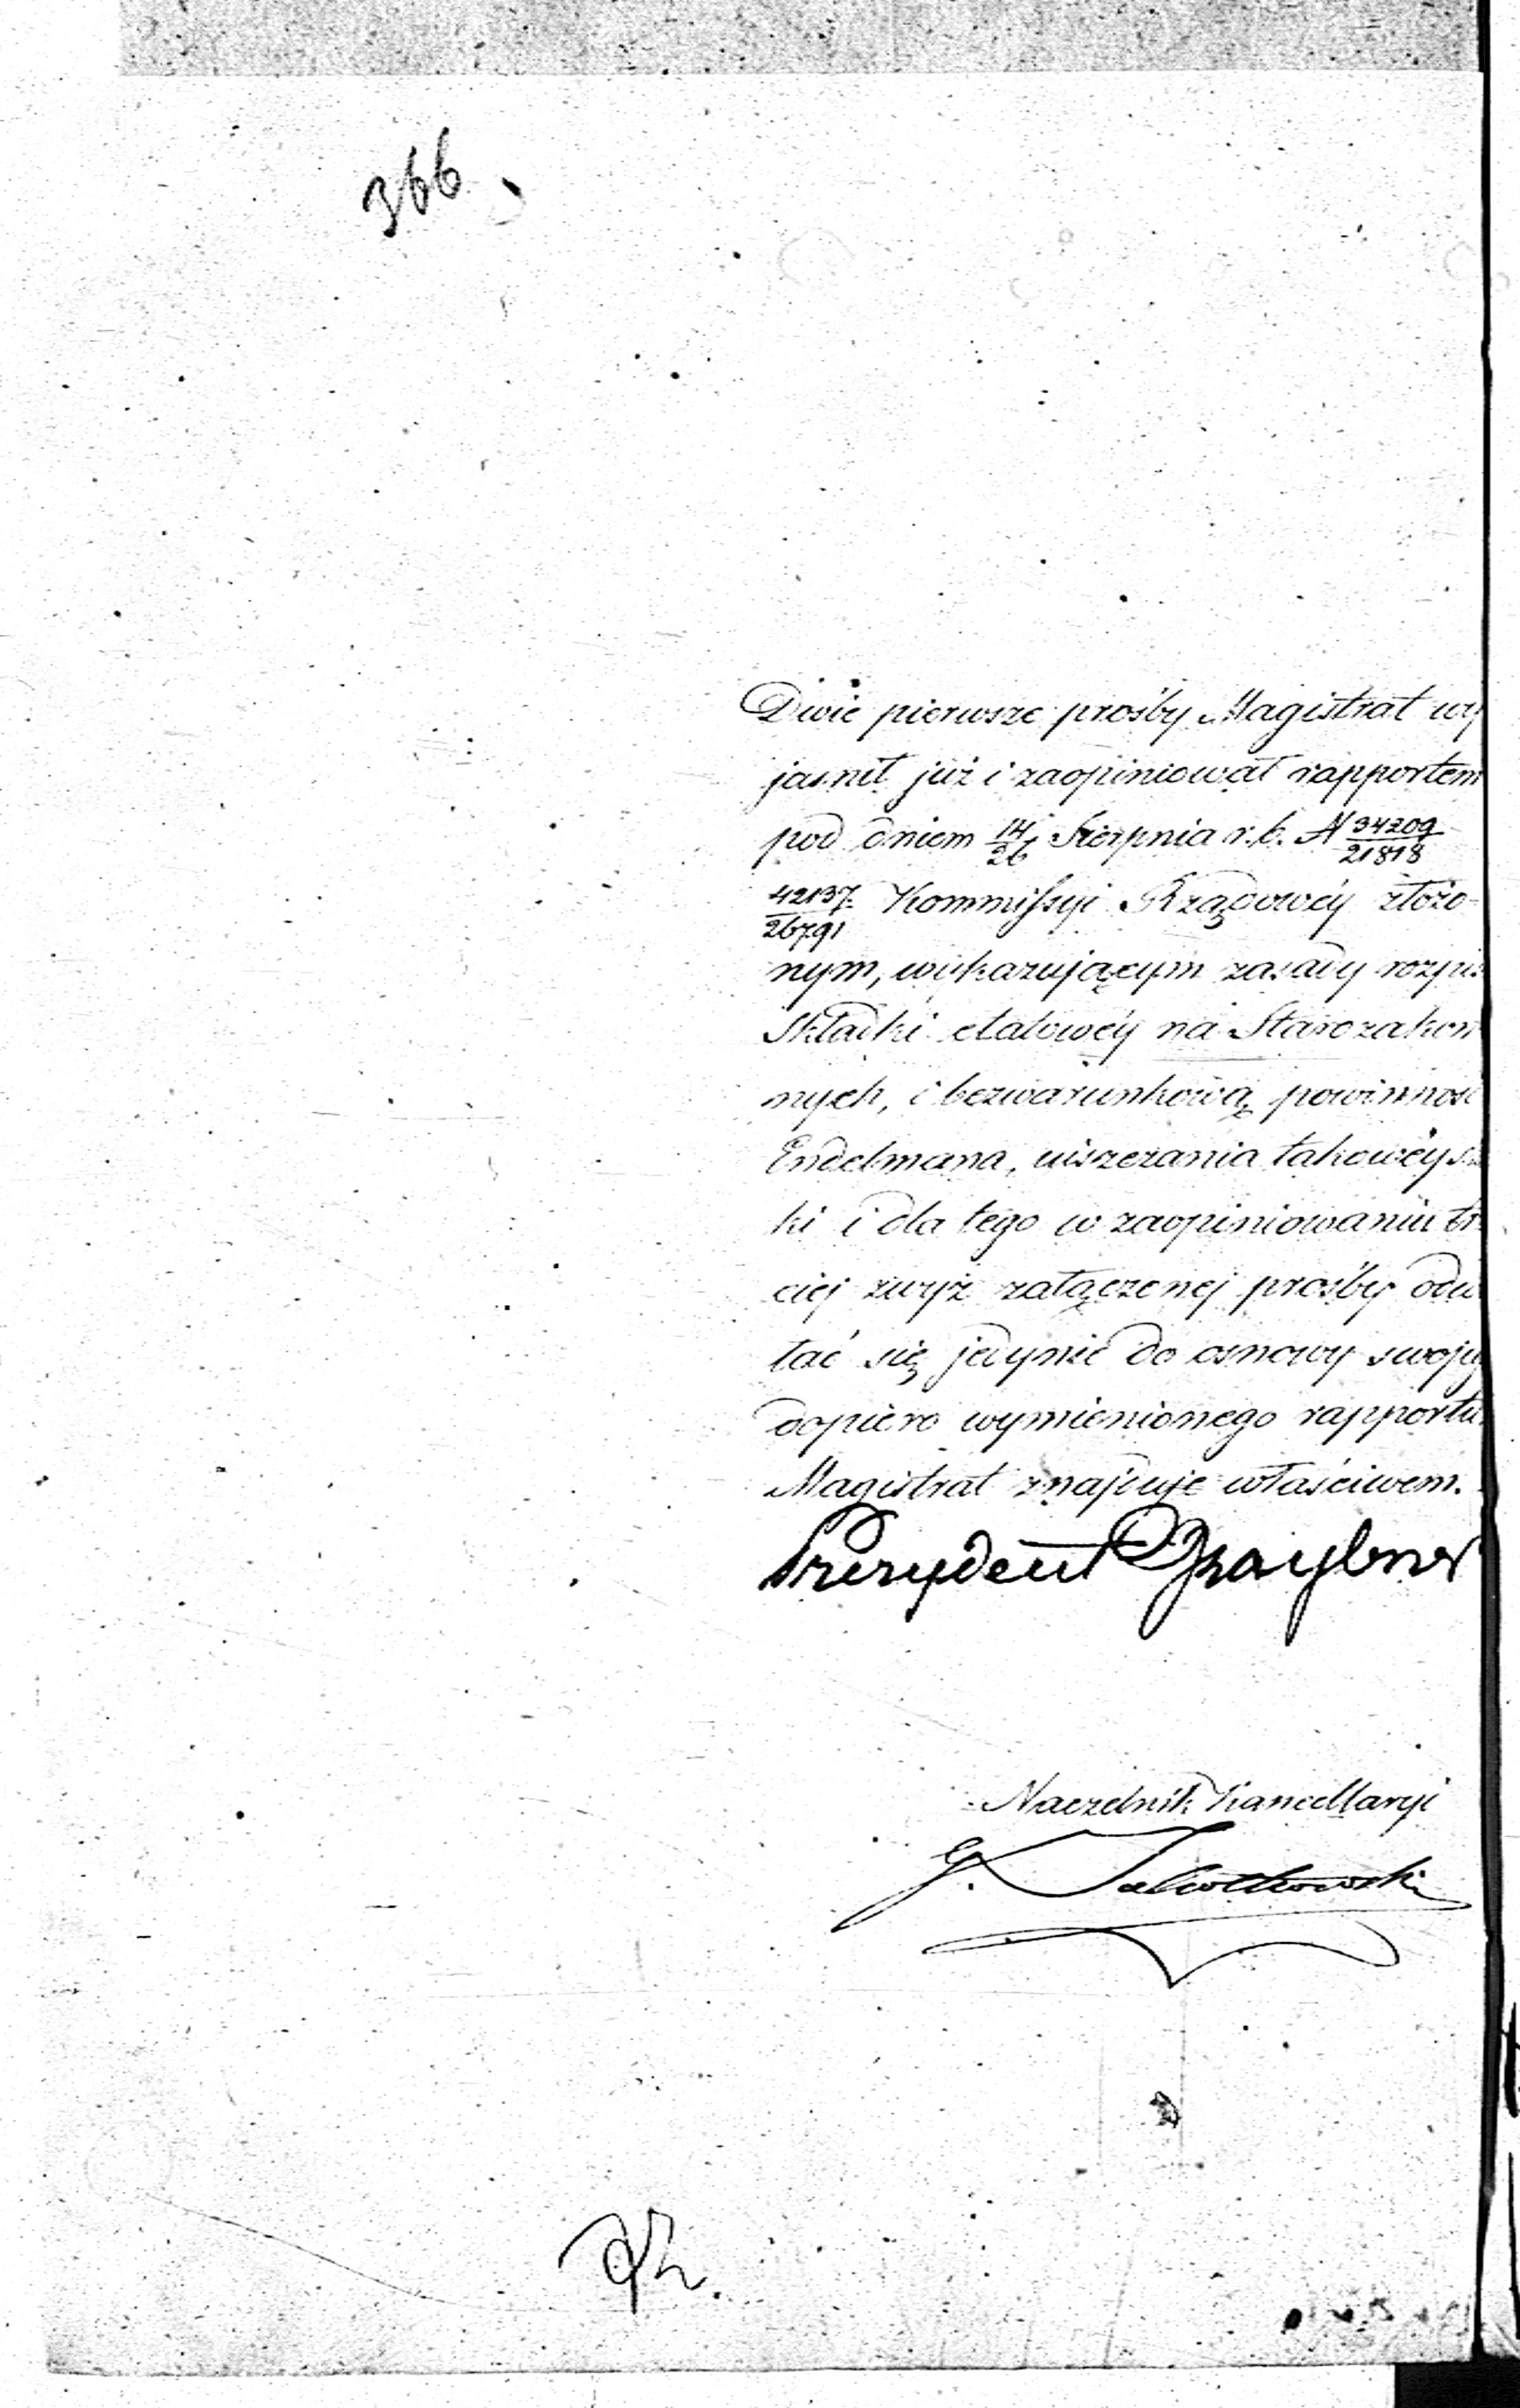 366
Dwie pierwsze prośby Magistrat wy
jasnił już i zaopiniował rapportem
pod dniem 14/26 Sierpnia r.b. N 34209/21818
42137/26791 Kommissyi Rządowéy złożo-
nym, wykazującym zasady rozpis
Składki etatowéy na Starozakon
nych, i bezwarunkową powinność
Endelmana, uiszczania takowéy s
ki i dla tego w zaopiniowaniu tr
ciej zwyż załączonej prośby odw
łać się jedynie do osnowy swoje
dopiero wymienionego rapportu
Magistrat znajduje właściwem.
Prezydent Graybner
Naczelnik Kancellaryi
G.